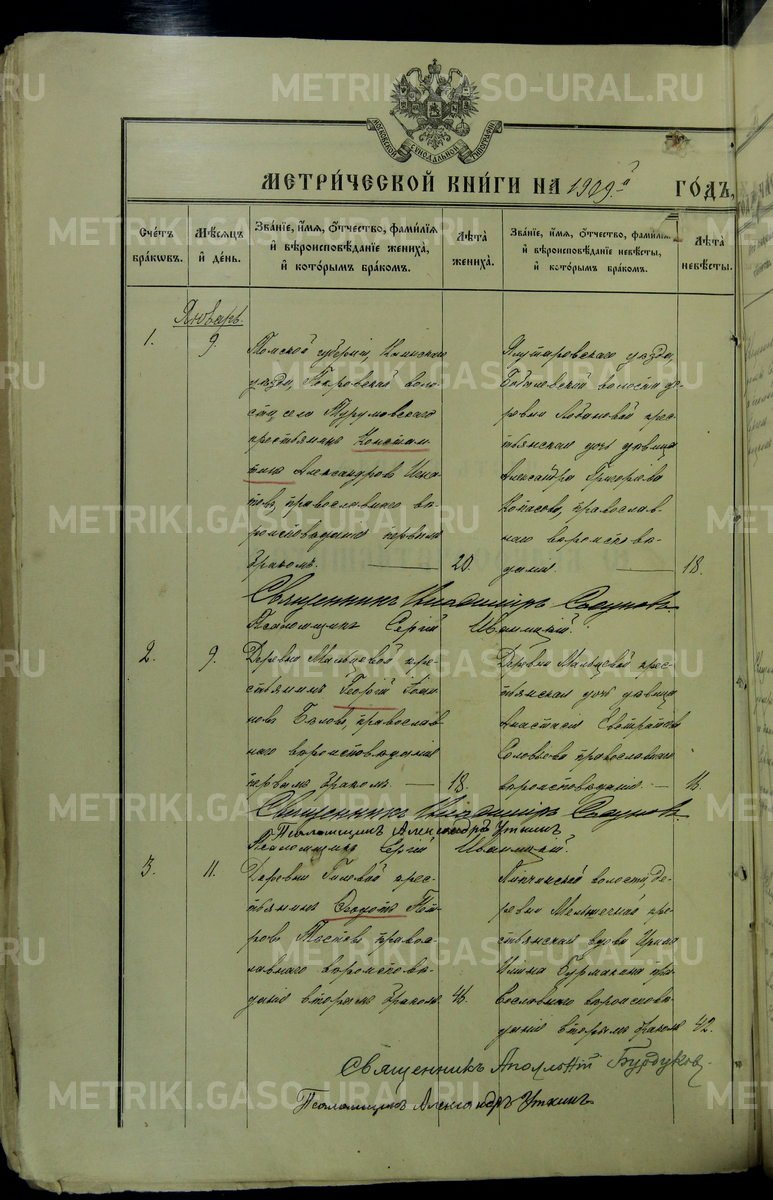 METRIKI.GASO-URAL.RU
МОСКОВСКОЙ СѴНОДАЛЬНОЙ ТИПОГРАФІИ
МЕТРИ́ЧЕСКОЙ КНИ́ГИ НА 1909.й ГО́ДЪ,
Сче́тъ бра́кѡвъ.
Мѣ́сяцъ и҆ де́нь.
Зва́нїе, и҆́мя, ѻ҆́тчество, фами́лїя
и҆ вѣроисповѣ́данїе жениха̀,
и҆ кото́рымъ бра́комъ.
Лѣта̀ жениха̀.
Зва́нїе, и҆́мя, ѻ҆́тчество, фами́лїя
и҆ вѣроисповѣ́данїе невѣ́сты,
и҆ кото́рымъ бра́комъ.
Лѣта̀ невѣ́сты.
Январь.
1.
9.
Томской губерніи, Каинскаго
уезда, Покровской воло-
сти, села Турумовскаго
крестьянинъ Констан-
тинъ Александровъ Игна-
товъ, православнаго ве-
роисповеданія первымъ
бракомъ.
20.
Ялуторовскаго уезда,
волости де-
ревни крес-
тьянская дочь девица
Александра Григоріева
православ-
наго вероиспове-
данія.
18.
Священникъ Владиміръ
Псаломщикъ Сергій
2.
9.
Деревни Мальцевой кре-
стьянинъ Георгій Іоан-
новъ Беловъ, православ-
наго вероисповеданія
первымъ бракомъ.
18.
Деревни Мальцевой крес-
тьянская дочь девица
Анастасія
Соловьева православнаго
вероисповеданія.
Священникъ Владиміръ
Псаломщикъ Александръ Уткинъ
Псаломщикъ Сергій
3.
11.
Деревни Гилевой крес-
тьянинъ Федотъ Пет-
ровъ правос-
лавнаго вероиспове-
данія вторымъ бракомъ
волости, де-
ревни кре-
стьянская вдова Ирина
Ильина Бурмакина пра-
вославнаго вероиспове-
данія вторымъ бракомъ
42.
Священникъ Аполлоній Бурдуковъ.
Псаломщикъ Александръ Уткинъ